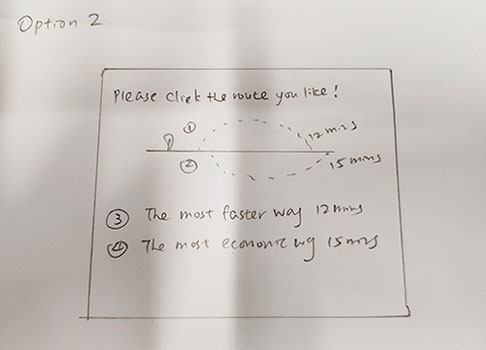 Option 2
Please click the route you like!
① 12 mins
② 15 mins
③ The most faster way 12 mins
④ The most economic wy 15 mins